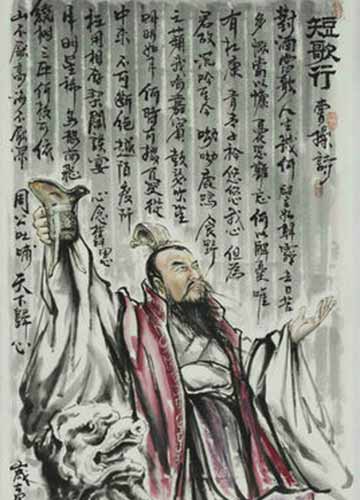 短歌行 曹操詩
對酒當歌人生幾何譬如朝露去日苦
多慨當以慷憂思難忘何以解憂唯
有杜康青青子衿悠悠我心但為
君故沉吟至今呦呦鹿鳴食野
之蘋我有嘉賓鼓瑟吹笙
明明如月何時可掇憂從
中來不可斷絕越陌度阡
枉用相存契闊談宴心念舊恩
月明星稀烏鵲南飛
繞樹三匝何枝可依
山不厭高海不厭深
周公吐哺天下歸心